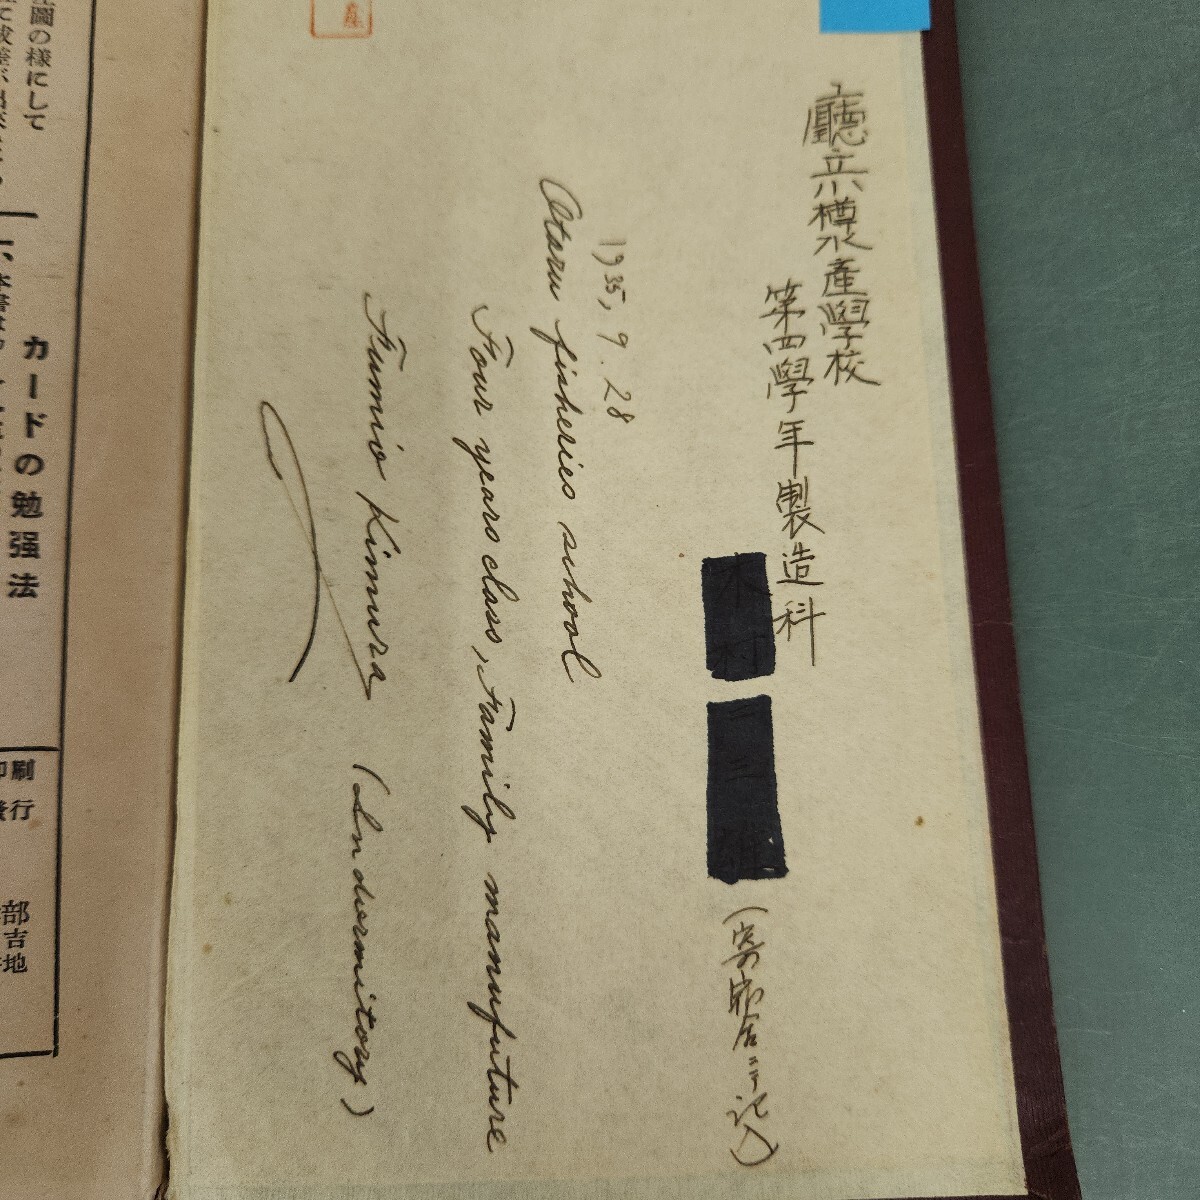 廳立小樽水產學校
第四學年製造科
木村
(寄宿舎ニテ記入)
1935, 9. 28
Otaru fisheries school
Four years class, Family manufuture
Fumio Kimura (In dormitory)
圖の様にして
カードの勉强法
一、本書は
印刷
發行
部
吉
地